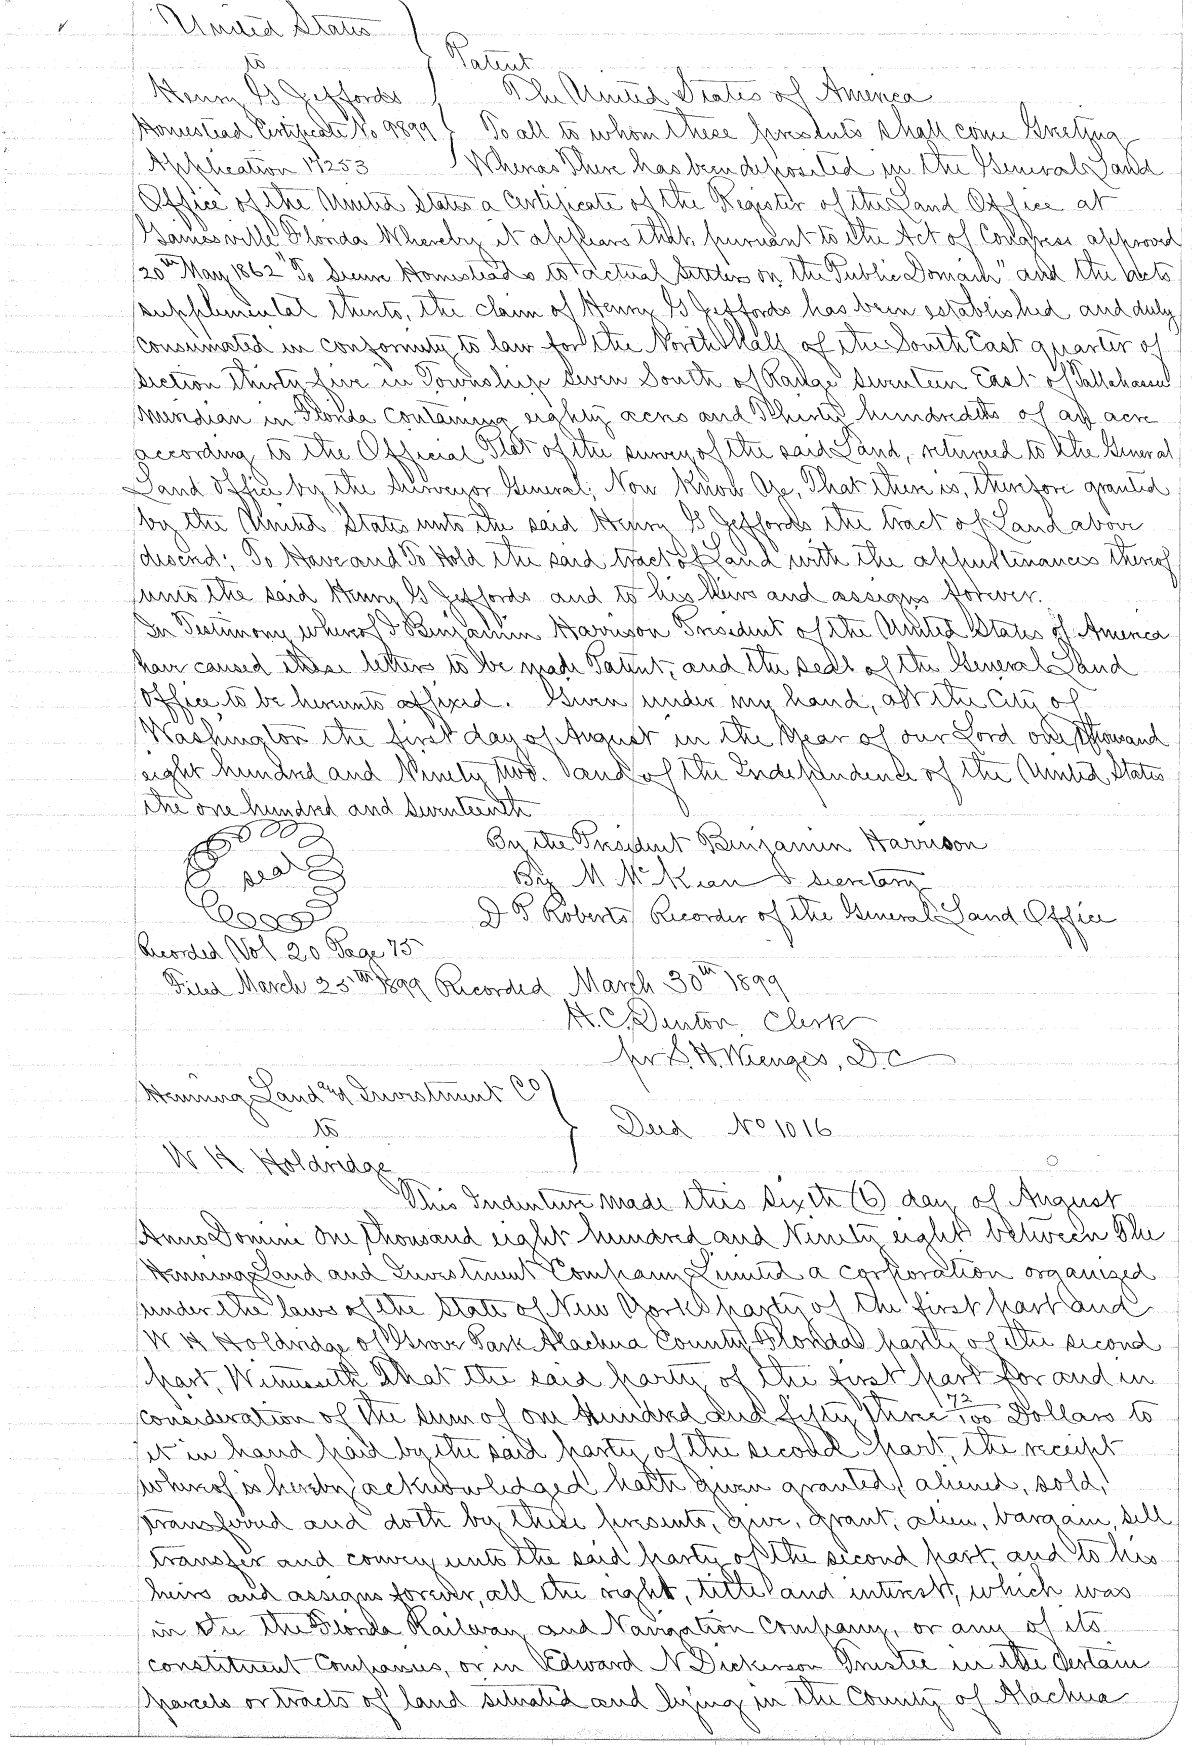 United States
to
Patent
Henry G Jeffords
The United States of America
Homestead Certificate No 9899
To all to whom these presents shall come Greeting
Application 17253
Whereas There has been deposited in the General Land
Office of the United States a Certificate of the Register of the Land Office at
Gainesville Florida Whereby it appears that, pursuant to the Act of Congress approved
20th May 1862 "To Secure Homesteads to actual Settlers on the Public Domain" and the acts
supplemental thereto, the claim of Henry G Jeffords has been established and duly
consumated in conformity to law for the North half of the South East quarter of
section thirty five in Township seven South of Range seventeen East of Tallahassee
Meridian in Florida containing eighty acres and Thirty hundredths of an acre
according to the Official Plat of the survey of the said Land, returned to the General
Land Office by the Surveyor General; Now Know Ye, That there is, therefore granted
by the United States unto the said Henry G Jeffords the tract of Land above
descred; To Have and To Hold the said tract of Land with the appurtenances thereof
unto the said Henry G Jeffords and to his Heirs and assigns forever.
In Testimony whereof I Benjamin Harrison President of the United States of America
have caused these letters to be made Patent, and the seal of the General Land
Office to be hereunto affixed. Given under my hand, at the City of
Washington the first day of August in the Year of our Lord one thousand
eight hundred and Ninety two. and of the Independence of the United States
the one hundred and seventeenth
By the President Benjamin Harrison
seal
By M McKean secretary
D P Roberts Recorder of the General Land Office
Recorded Vol 20 Page 75
Filed March 25th 1899 Recorded March 30th 1899
H. C. Denton, Clerk
pr S. H. Wienges, D.C
Henning Land and Investment Co
to
Deed No 1016
W H Holdridge
This Indenture made this sixth (6) day of August
Anno Domini One thousand eight hundred and Ninety eight between The
Henning Land and Investment Company Limited a corporation organized
under the laws of the State of New York party of the first part and
W H Holdridge of Grove Park Alachua County Florida party of the second
part, Witnesseth That the said party of the first part for and in
consideration of the sum of one Hundred and fifty three 72/100 Dollars to
it in hand paid by the said party of the second part, the receipt
whereof is hereby acknowledged hath given granted, aliened, sold,
transferred and doth by these presents, give, grant, alien, bargain, sell
transfer and convey unto the said party of the second part, and to his
heirs and assigns forever, all the right, title and interest, which was
in the the Florida Railway and Navigation Company, or any of its
constituent Companies, or in Edward N Dickerson Trustee in the Certain
parcels or tracts of land situated and lying in the County of Alachua